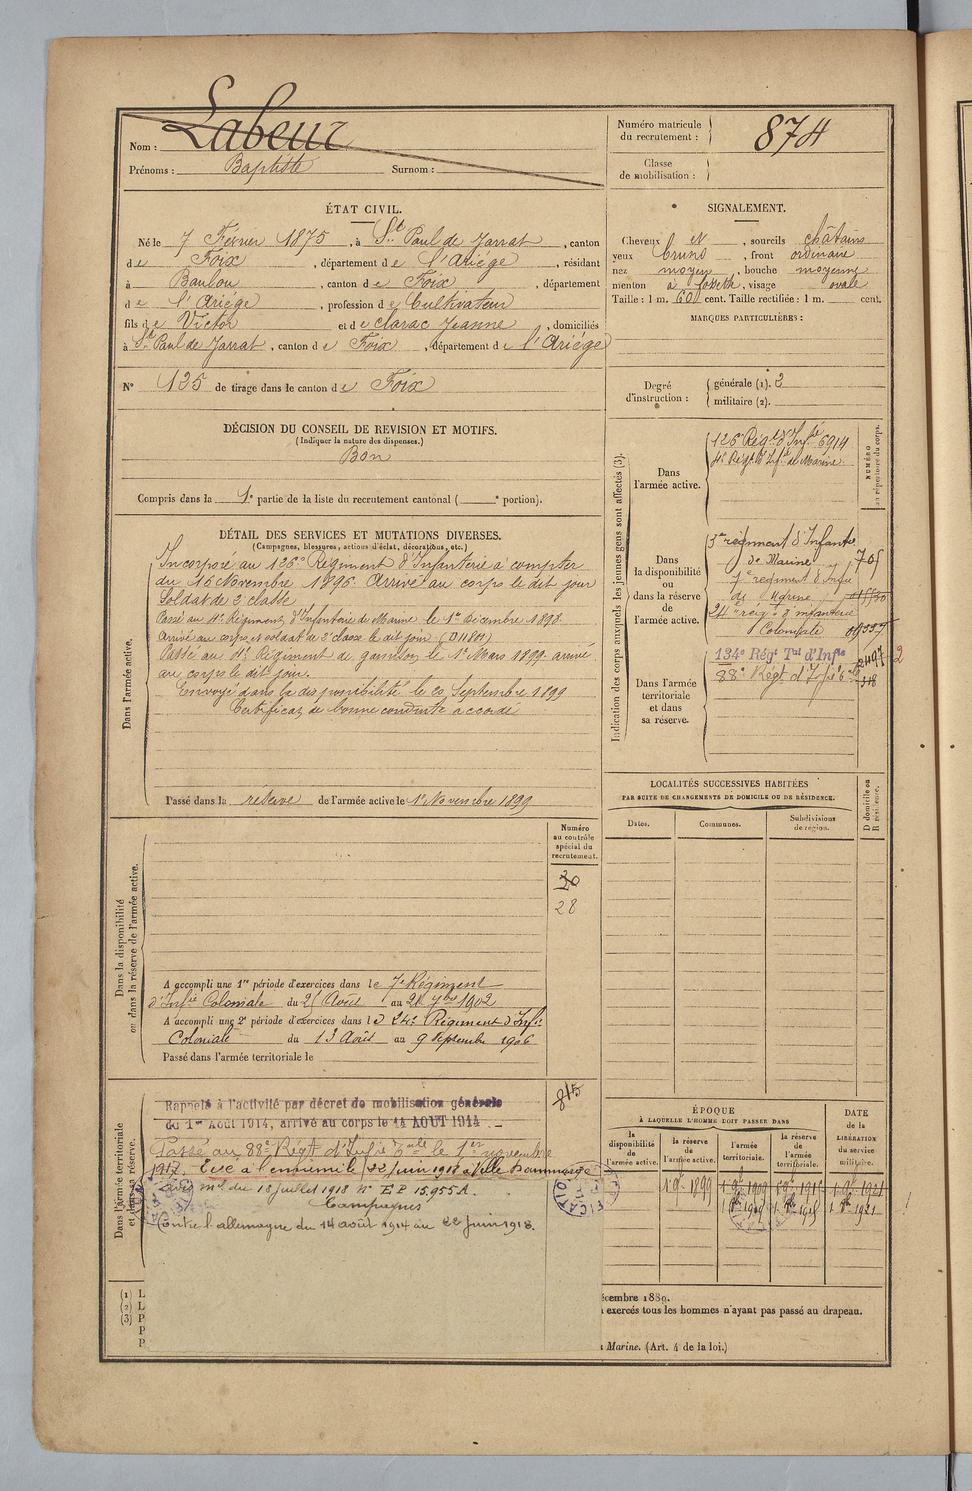 Nom : Labeur
Prénoms : Baptiste Surnom :
Numéro matricule du recrutement : 874
Classe de mobilisation :
ÉTAT CIVIL.
Né le 7 Février 1875, à St Paul de Jarrat, canton
de Foix, département de l'Ariège, résidant
à Baulou, canton de Foix, département
de l'Ariège, profession de Cultivateur
fils de Victor et de Clarac Jeanne, domiciliés
à St Paul de Jarrat, canton de Foix, département de l'Ariège
N° 125 de tirage dans le canton de Foix
SIGNALEMENT.
Cheveux et, sourcils châtains
yeux bruns, front ordinaire
nez moyen, bouche moyenne
menton à fossette, visage ovale
Taille : 1 m. 60 cent. Taille rectifiée : 1 m. cent.
MARQUES PARTICULIÈRES :
Degré d'instruction : générale (1). 3
militaire (2).
DÉCISION DU CONSEIL DE REVISION ET MOTIFS.
(Indiquer la nature des dispenses.)
Bon
Compris dans la 1e partie de la liste du recrutement cantonal ( e portion).
DÉTAIL DES SERVICES ET MUTATIONS DIVERSES.
(Campagnes, blessures, actions d'éclat, décorations, etc.)
Dans l'armée active.
Incorporé au 126e Régiment d'Infanterie à compter
du 16 Novembre 1896. Arrivé au corps le dit jour
Soldat de 2e classe
Passé au 4e Régiment d'Infanterie de Marine le 1er Décembre 1898.
Arrivé au corps et soldat de 2e classe le dit jour (D11801)
Passé au 11e Régiment de garnison le 1er Mars 1899. arrivé
au corps le dit jour.
Envoyé dans la disponibilité le 20 Septembre 1899
Certificat de bonne conduite accordé
Passé dans la réserve de l'armée active le 1er Novembre 1899
Indication des corps auxquels les jeunes gens sont affectés (3).
NUMÉRO au répertoire du corps.
Dans l'armée active.
126e Régt d'Infie 6914
4e Régt d'Infie de Marine
Dans la disponibilité ou dans la réserve de l'armée active.
3e régiment d'Infante
de Marine 705
7e régiment d'Infie
de Marine
24e régt d'infanterie
Coloniale
Dans l'armée territoriale et dans sa réserve.
134e Régt Tal d'Infie
88e Régt d'Infie
LOCALITÉS SUCCESSIVES HABITÉES
PAR SUITE DE CHANGEMENTS DE DOMICILE OU DE RÉSIDENCE.
Dates. Communes. Subdivisions de région.
D domicile ou R résidence.
Dans la disponibilité ou dans la réserve de l'armée active.
Numéro au contrôle spécial du recrutement.
28
A accompli une 1re période d'exercices dans le 7e Régiment
d'Infie Coloniale du 25 Août au 21 7bre 1902
A accompli une 2e période d'exercices dans le 24e Régiment d'Infie
Coloniale du 13 Août au 9 Septembre 1906
Passé dans l'armée territoriale le
Dans l'armée territoriale et dans sa réserve.
815
Rappelé à l'activité par décret de mobilisation générale
du 1er Août 1914, arrivé au corps le 14 AOUT 1914
Passé au 88e Régt d'Infie le 1er novembre
1917. Tué à l'ennemi le 22 Juin 1918 à Ville Dommange
avis mel du 18 juillet 1918 n° EP 15.955 A.
Campagnes
Contre l'allemagne du 14 août 1914 au 22 Juin 1918.
ÉPOQUE
À LAQUELLE L'HOMME DOIT PASSER DANS
la disponibilité de l'armée active. la réserve de l'armée active. l'armée territoriale. la réserve de l'armée territoriale.
DATE DE LA LIBÉRATION DU service militaire.
(1) L
(2) L
(3) P
P
P
écembre 1889.
exercés tous les hommes n'ayant pas passé au drapeau.
Marine. (Art. 4 de la loi.)